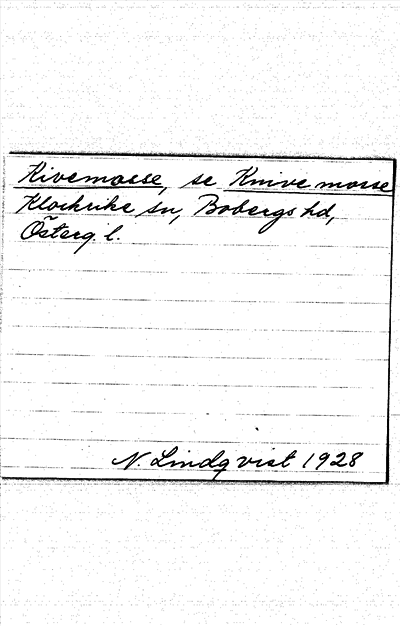 Kivemosse, se Knivemosse
Klockrike sn, Bobergs hd,
Österg. l.
N. Lindqvist 1928